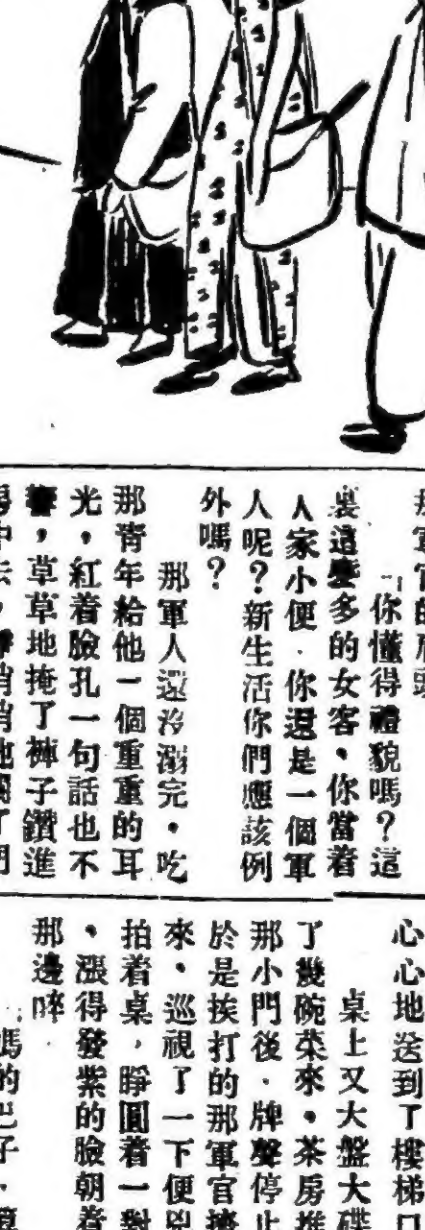 那軍官的肩頭
「你懂得禮貌嗎？這
裏這麼多的女客，你當着
人家小便．你還是一個軍
人呢？新生活你們應該例
外嗎？
那軍人還沒溺完，吃
那青年給他一個重重的耳
光，紅着臉孔一句話也不
響，草草地掩了褲子鑽進
中去，悄悄地關了門
心心地送到了樓梯口
桌上又大盤大碟
了幾碗菜來，茶房推
那小門後．牌聲停止
於是挨打的那軍官擠
來，巡視了一下便兇
拍着桌，睜圓着一對
，漲得發紫的臉朝着
那邊啐
媽的巴子，